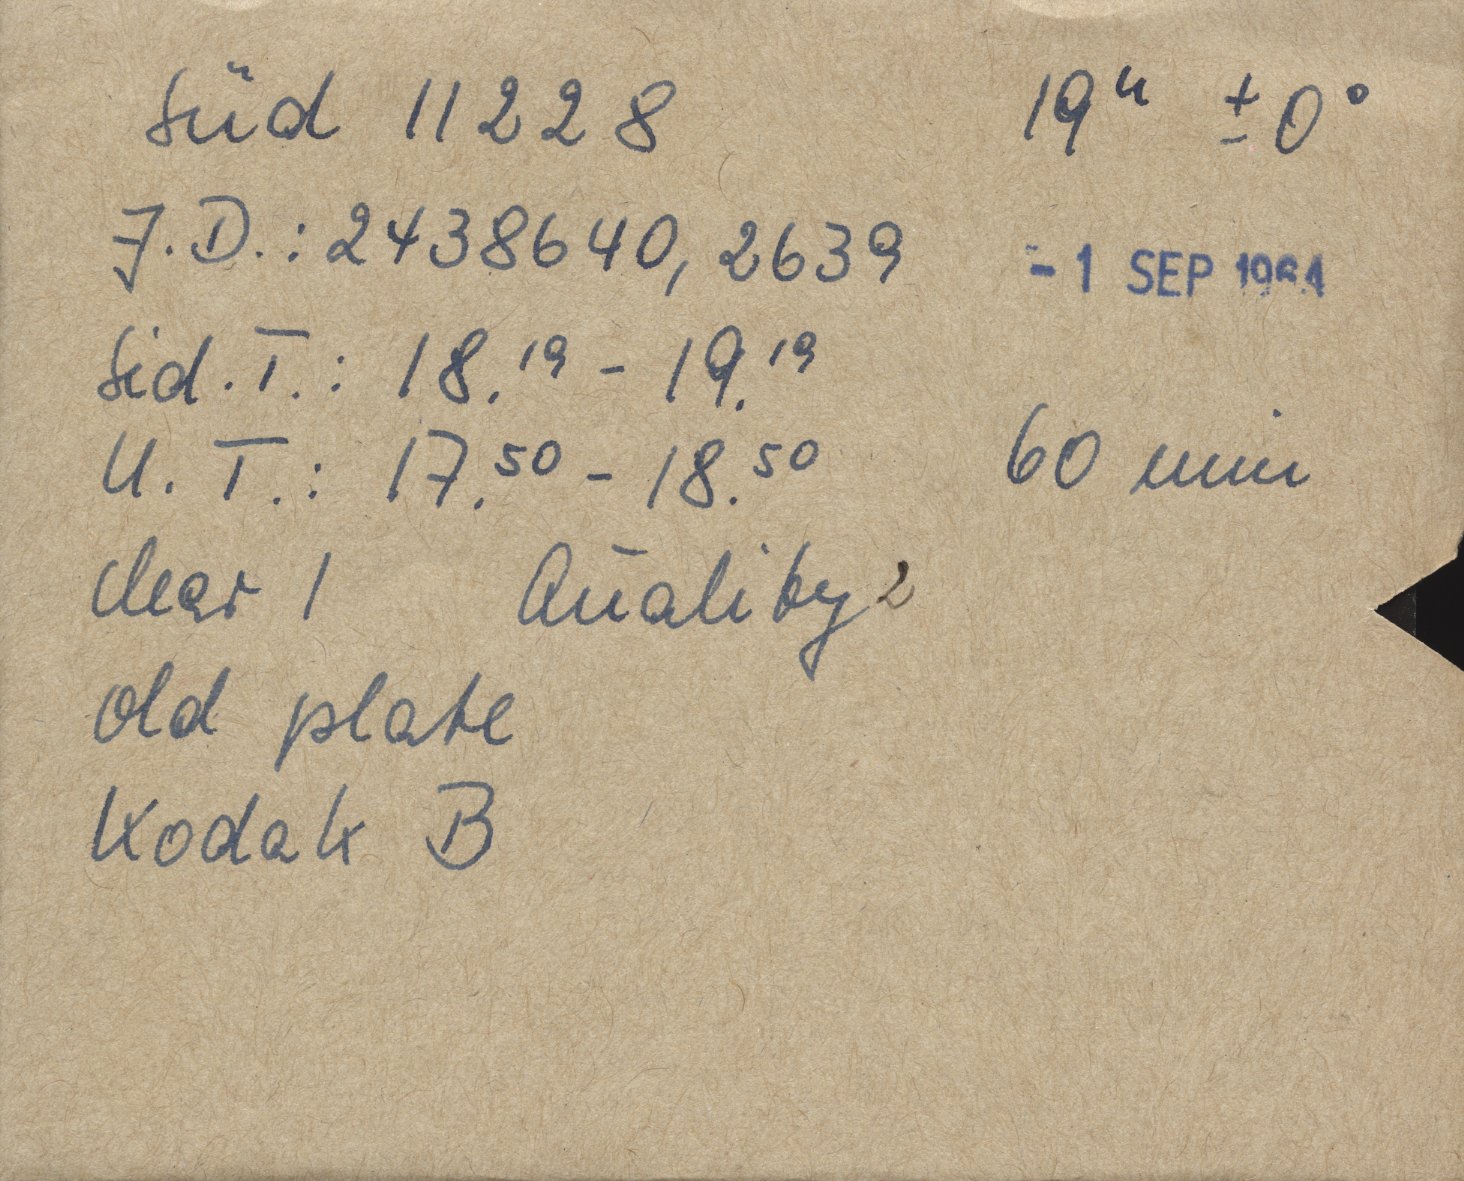 Süd 11228 19ʰ ±0°
J.D.: 2438640,2639 -1 SEP 1964
Sid. T.: 18.19 - 19.19
U. T.: 17.50 - 18.50 60 min
clear 1 Quality 2
old plate
Kodak B